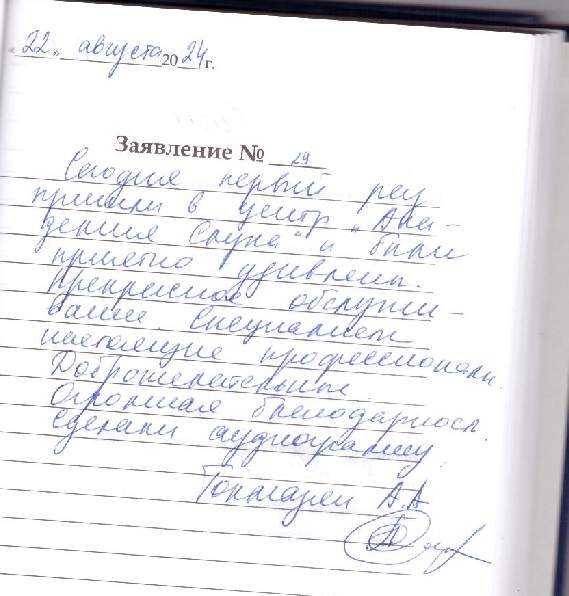 « 22 » августа 20 24 г.
Заявление № 29
Сегодня первый раз
пришли в центр „Ака-
демия Слуха" и были
приятно удивлены.
Прекрасное обслужи-
вание. Специалисты
настоящие профессионалы.
Доброжелательные.
Огромная благодарность.
Сделали аудиограмму.
А.А